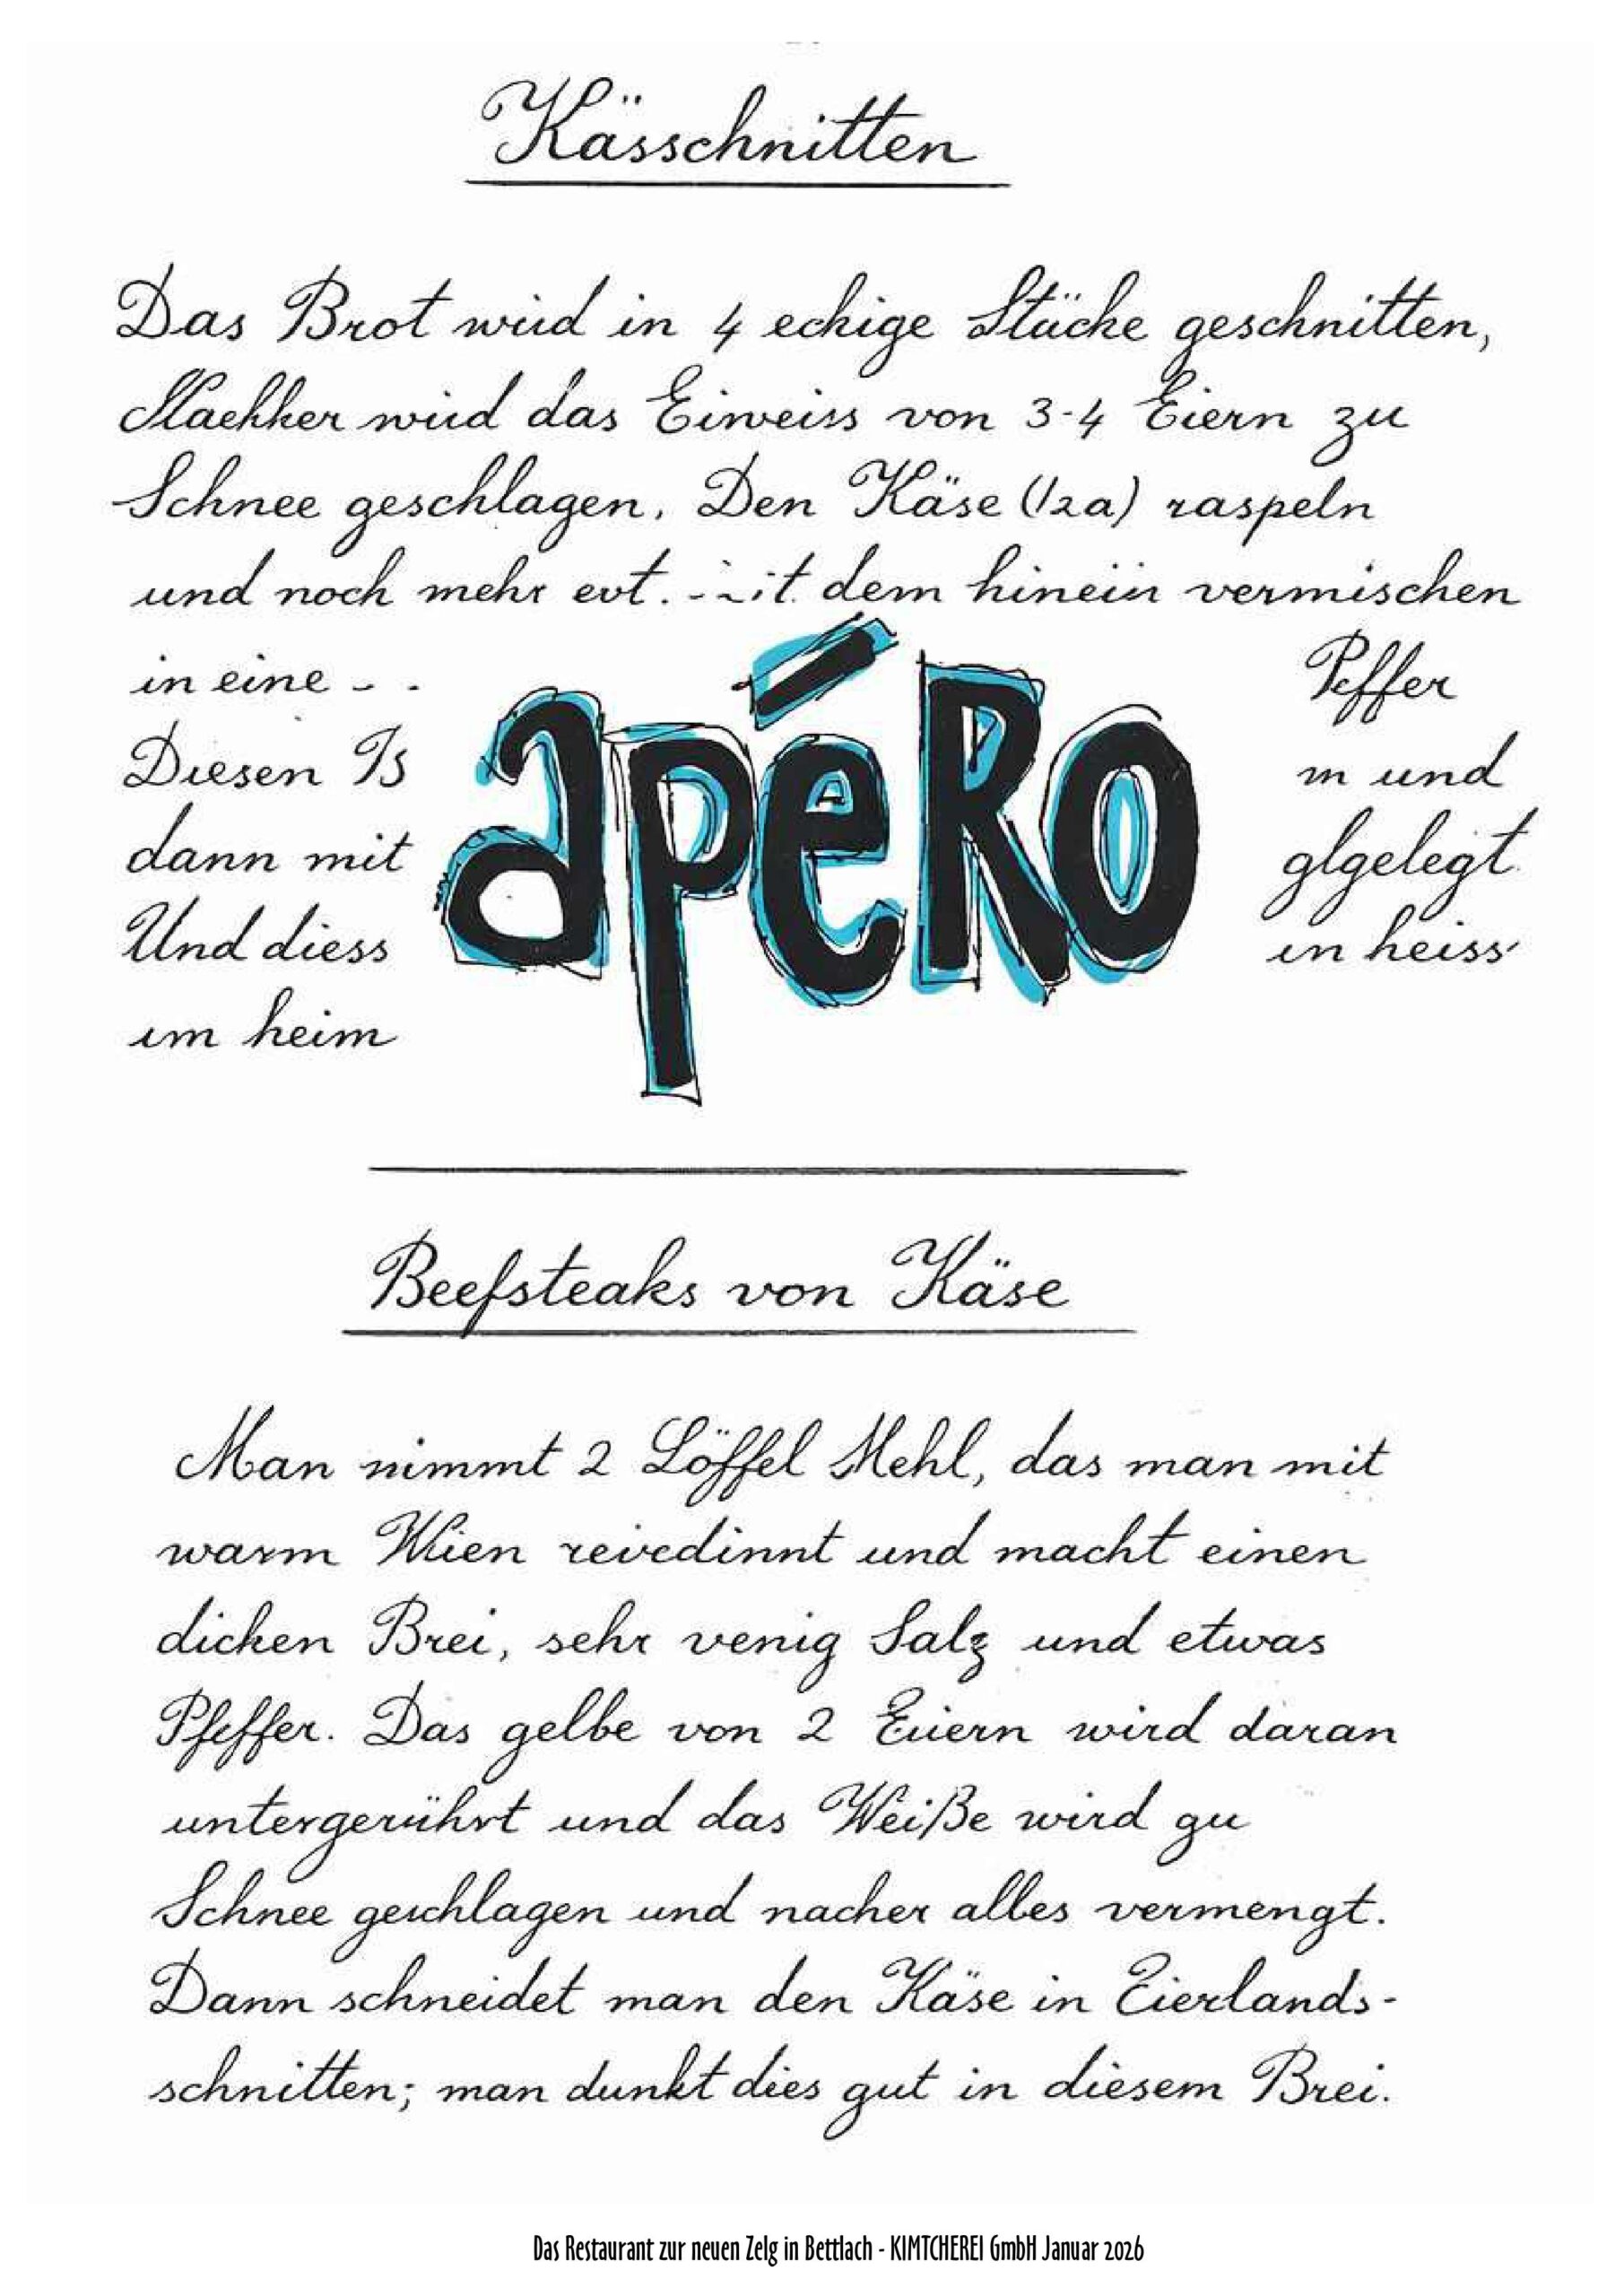 Kässchnitten
Das Brot wird in 4 eckige Stücke geschnitten,
wird das Eiweiss von 3-4 Eiern zu
Schnee geschlagen. Den Käse (12a) raspeln
und noch mehr evt. dem hinein vermischen
in eine - - Peffer
Diesen Is m und
dann mit glgelegt
Und diess en heiss
im heim
apéRo
Beefsteaks von Käse
Man nimmt 2 Löffel Mehl, das man mit
warm Wien reivedinnt und macht einen
dicken Brei, sehr venig Salz und etwas
Pfeffer. Das gelbe von 2 Euern wird daran
untergerührt und das Weiße wird gu
Schnee geschlagen und nacher alles vermengt.
Dann schneidet man den Käse in Eierlands-
schnitten; man dunkt dies gut in diesem Brei.
Das Restaurant zur neuen Zelg in Bettlach - KIMTCHEREI GmbH Januar 2026